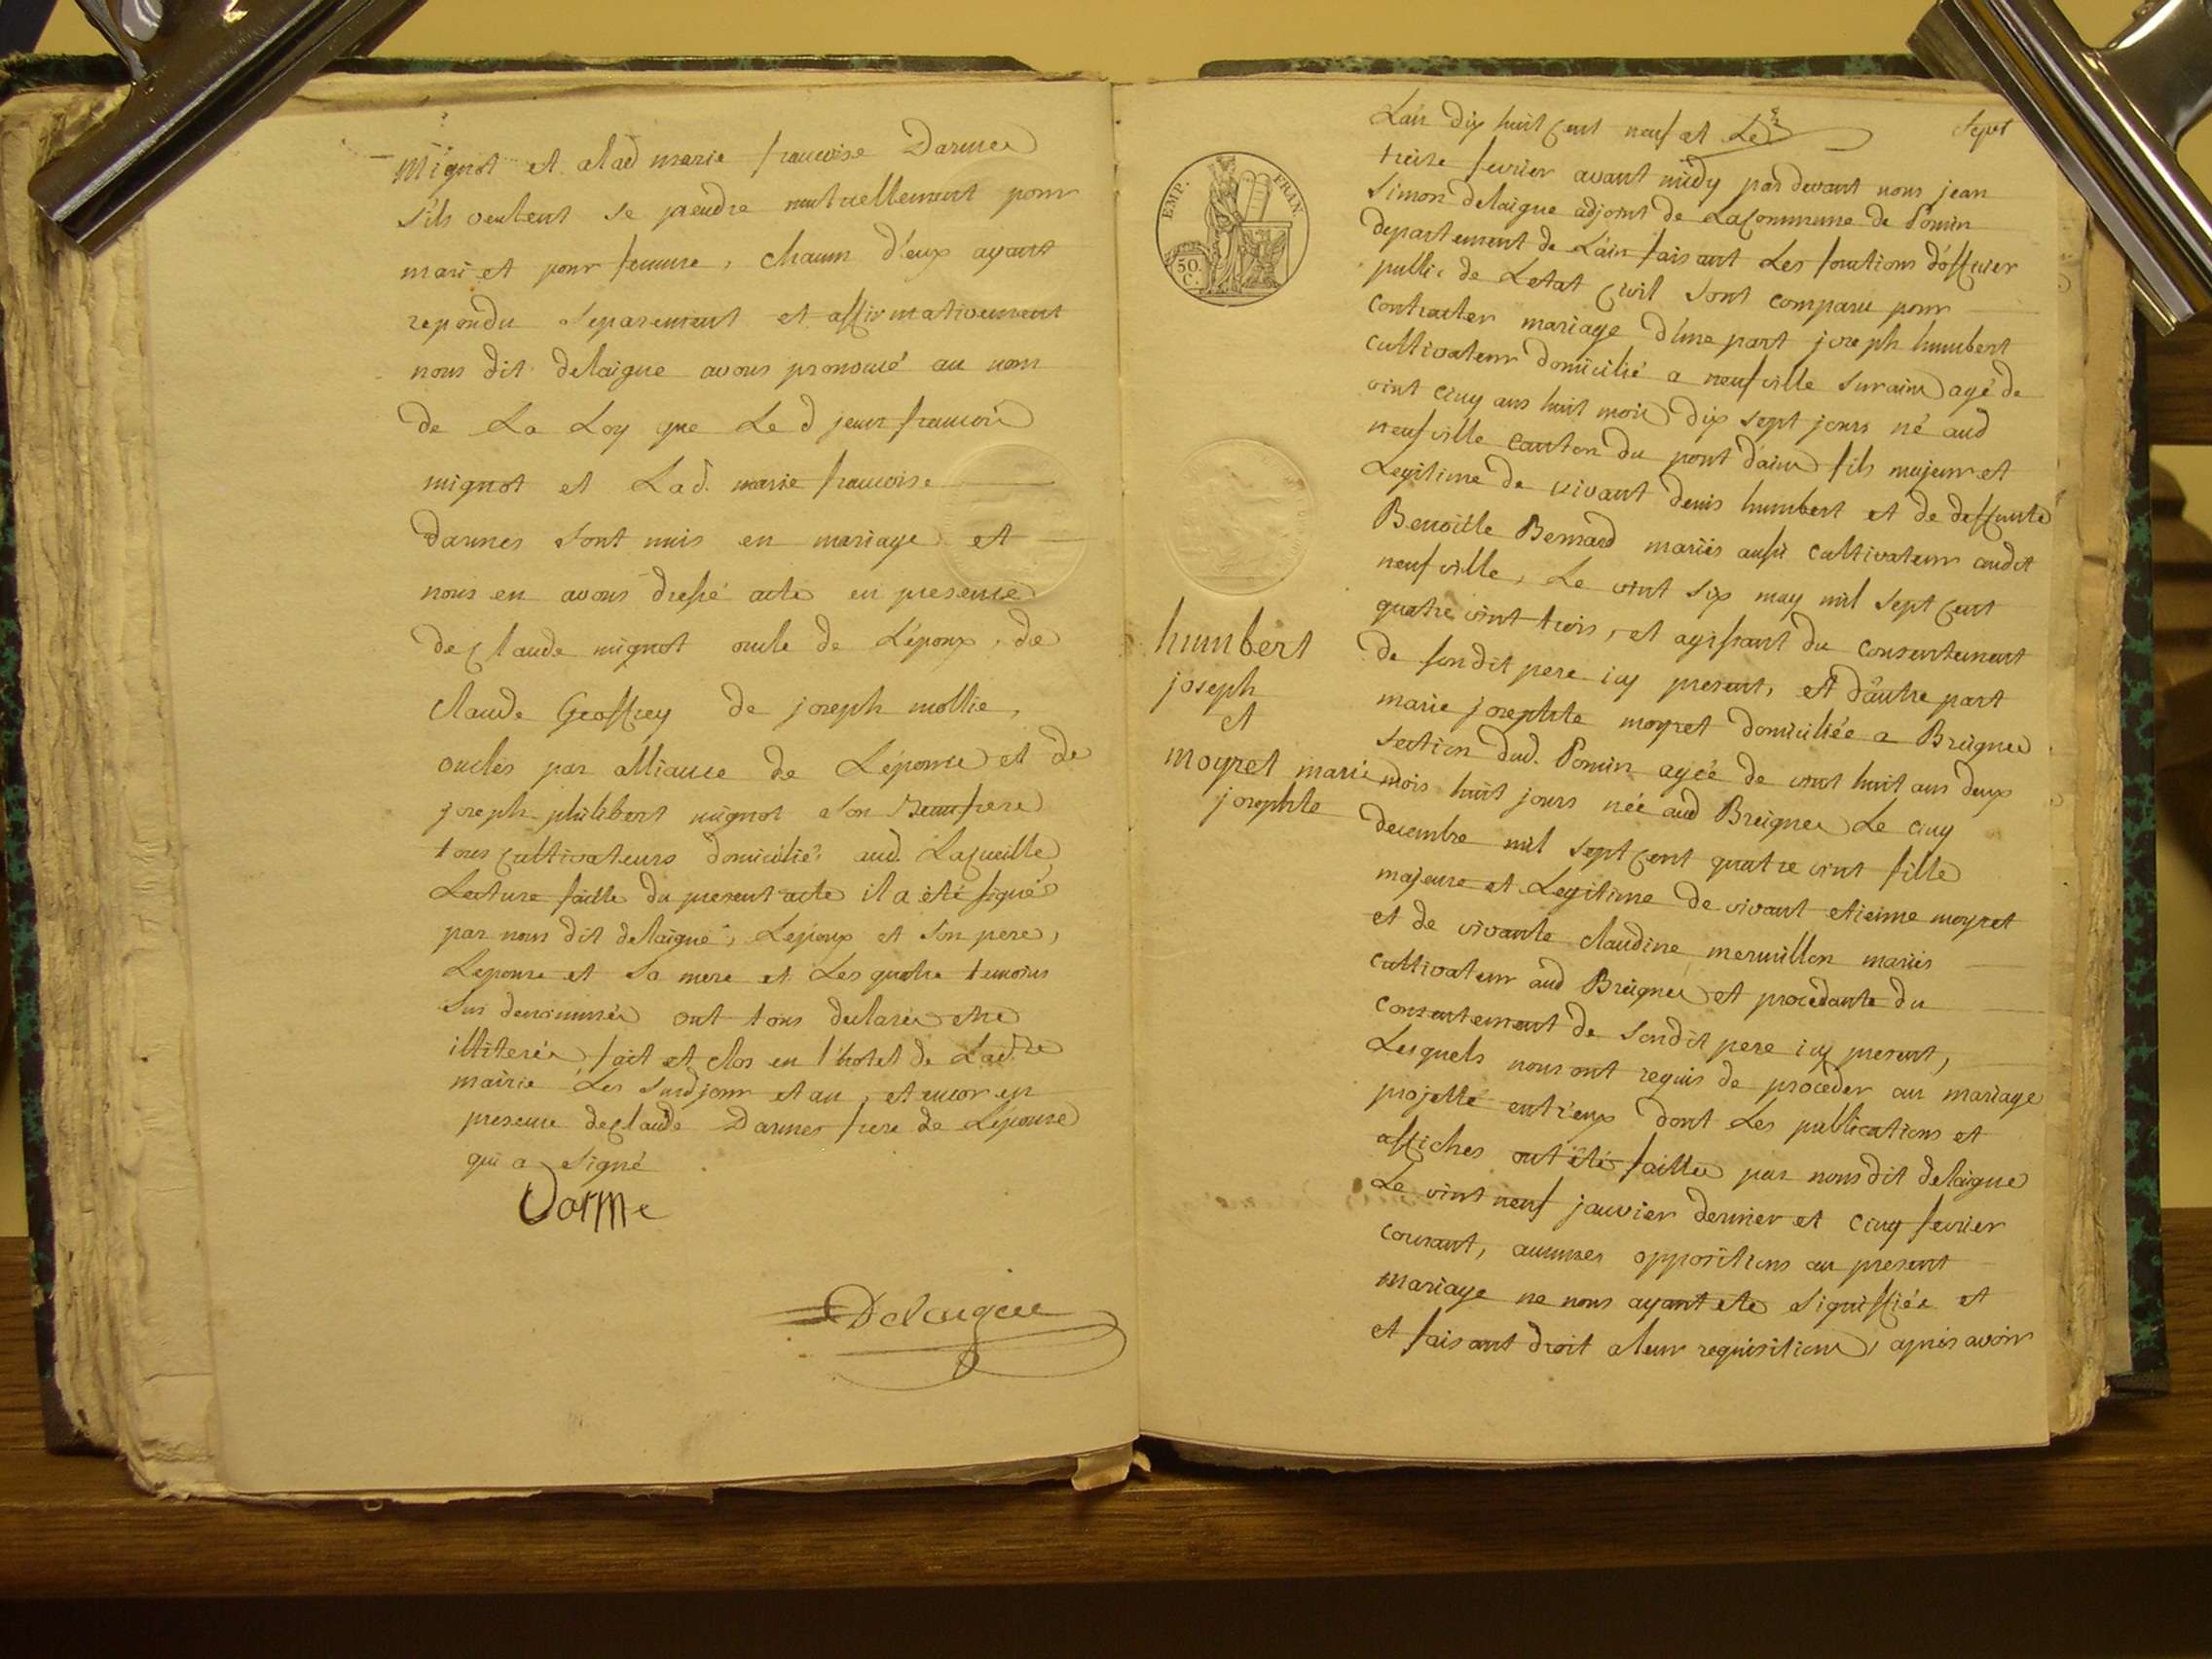 Mignot et alad marie francoise Darmes
s'ils veulent se prendre mutuellement pour
mari et pour femme, chacun d'eux ayant
repondu separement et affirmativement
nous dit delaigue avons prononcé au nom
de La Loy que Le d jean francois
mignot et Lad. marie francoise
darmes sont unis en mariage et
nous en avons dressé acte en presence
de claude mignot oncle de L'époux, de
claude Geoffrey de joseph mollie,
oncles par alliance de L'épouse et de
joseph philibert mignot son Beaufrere
tous cultivateurs domiciliés aud. Lacueille
Lecture faitte du present acte il a été signé
par nous dit delaigue, Lepoux et son pere,
Lepouse et sa mere et Les quatre temoins
sus denommés ont tous declarés etre
illiterés, fait et clos en l'hotel de Ladite
mairie Les susd jour et an, et encor en
presence de claude Darmes frere de Lepouse
qui a signé
Darme
Delaigue
EMP. FRAN.
50 C.
humbert
joseph
et
moyret marie
josephte
sept
Lan dix huit cent neuf et Le
treize fevrier avant midy par devant nous jean
simon delaigue adjoint de La commune de Poncin
departement de L'ain faisant Les fonctions d'officier
public de Letat civil sont comparu pour
contracter mariage d'une part joseph humbert
cultivateur domicilié a neufville surain agé de
vint cinq ans huit mois dix sept jours né aud
neufville canton du pont d'ain fils majeur et
Legitime de vivant denis humbert et de deffunte
Benoitte Bernard mariés aussi cultivateur audit
neufville, Le vint six may mil sept cent
quatre vint trois, et agissant du consentement
de son dit pere icy present, et d'autre part
marie josephte moyret domiciliée a Breignes
section dud. Poncin agée de vint huit ans deux
mois huit jours née aud Breignes Le cinq
decembre mil sept cent quatre vint fille
majeure et Legitime de vivant etienne moyret
et de vivante claudine mermillon mariés
cultivateur aud Breignes et procedante du
consentement de sondit pere icy present,
Lesquels nous ont requis de procéder au mariage
projetté entr'eux dont Les publications et
affiches ont été faittes par nous dit delaigue
Le vint neuf janvier dernier et cinq fevrier
courant, aucunes oppositions au present
mariage ne nous ayant ete signiffiées et
et faisant droit a leur requisition, après avoir